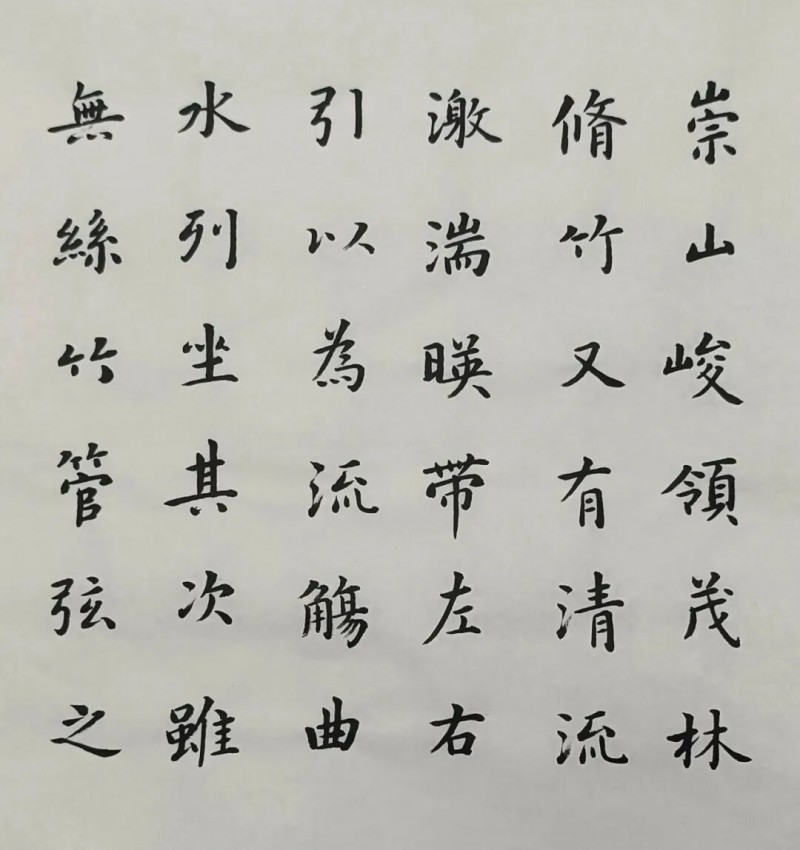 崇山峻領茂林
脩竹又有清流
激湍暎带左右
引以為流觴曲
水列坐其次雖
無絲竹管弦之